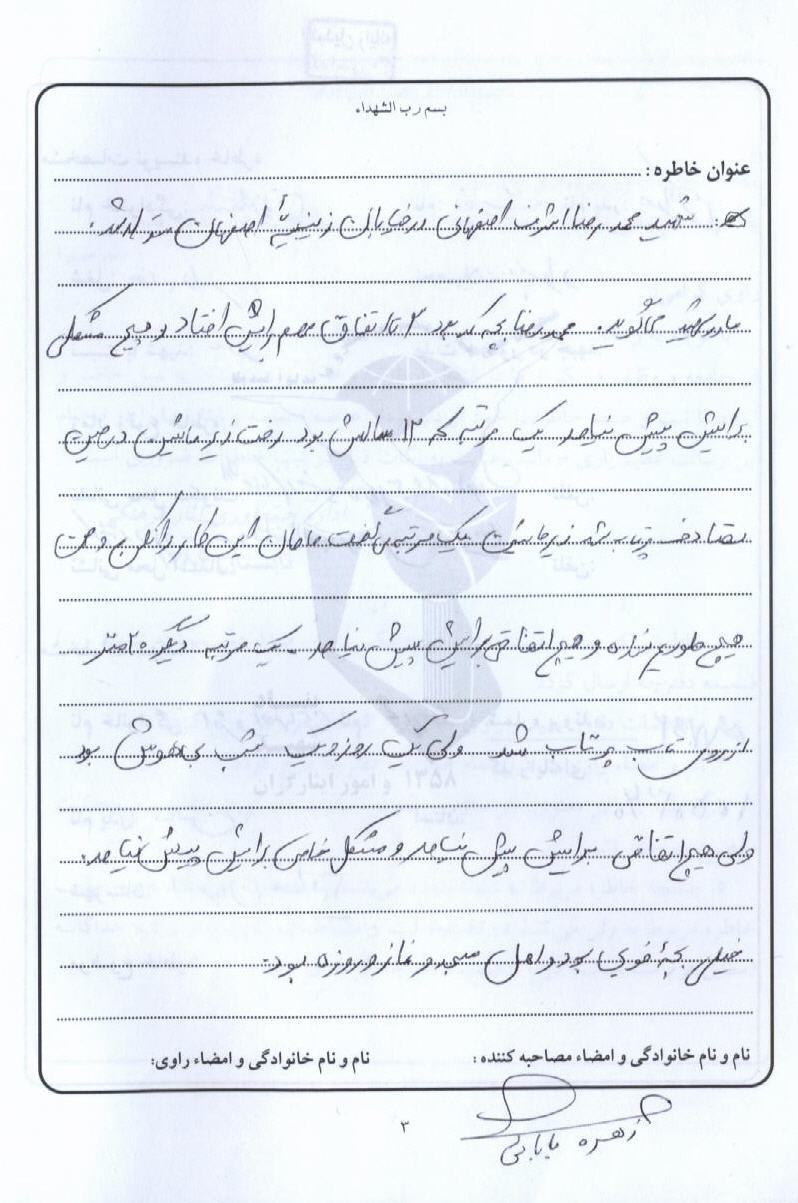 بسم رب الشهداء
عنوان خاطره :
شهید محمد رضا اشرف اصفهانی در خیابان زینبیۀ اصفهان متولد شد.
مادر شهید می‌گوید: محمد رضا بچه که بود ۲ تا اتفاق مهم برایش افتاد و هیچ مشکلی
برایش پیش نیامد یک مرتبه که ۱۳ سالش بود رفت زیر ماشین در حین
تصادف پرتاب شد زیر ماشین یک مرتبه گفت مامان این کار را نکن برو عقب
هیچ طوریم نزده و هیچ اتفاقی برایش پیش نیامد. یک مرتبه دیگر ۲۰ متر
از روی تاب پرتاب شد ولی یک روز و یک شب بیهوش بود
ولی هیچ اتفاقی برایش پیش نیامد و مشکل خاصی برایش پیش نیامد.
خیلی بچۀ خوبی بود و اهل مسجد و نماز و روزه بود.
نام و نام خانوادگی و امضاء مصاحبه کننده : نام و نام خانوادگی و امضاء راوی:
زهره بابایی
۳